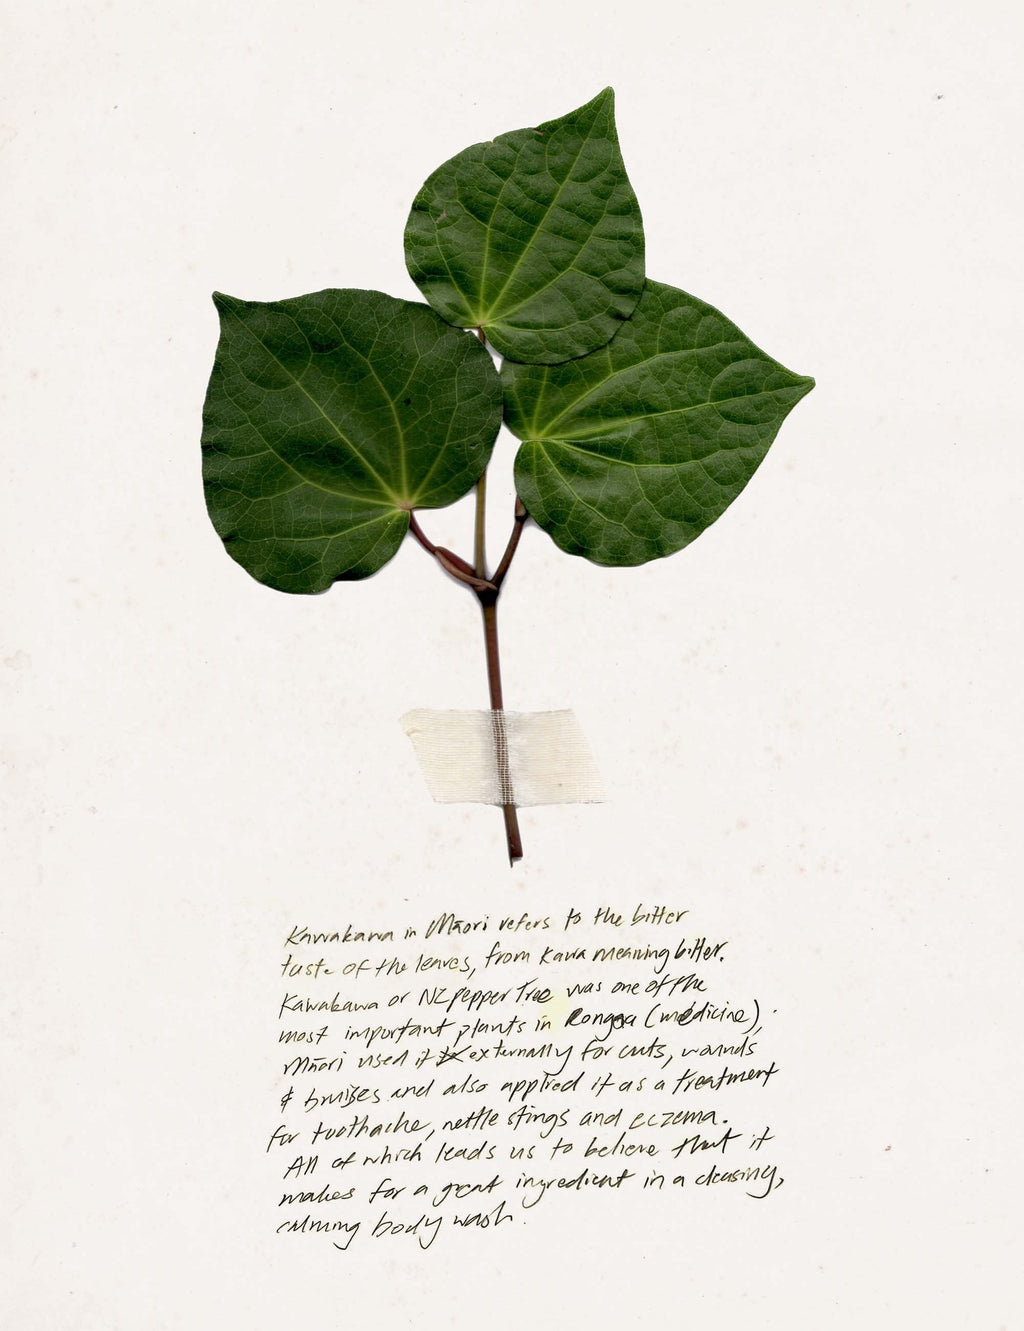 Kawakawa in Māori refers to the bitter
taste of the leaves, from kawa meaning bitter.
Kawakawa or NZ pepper Tree was one of the
most important plants in Rongoa (medicine),
Māori used it externally for cuts, wounds
& bruises and also applied it as a treatment
for toothache, nettle stings and eczema.
All of which leads us to believe that it
makes for a great ingredient in a cleasing,
calming body wash.